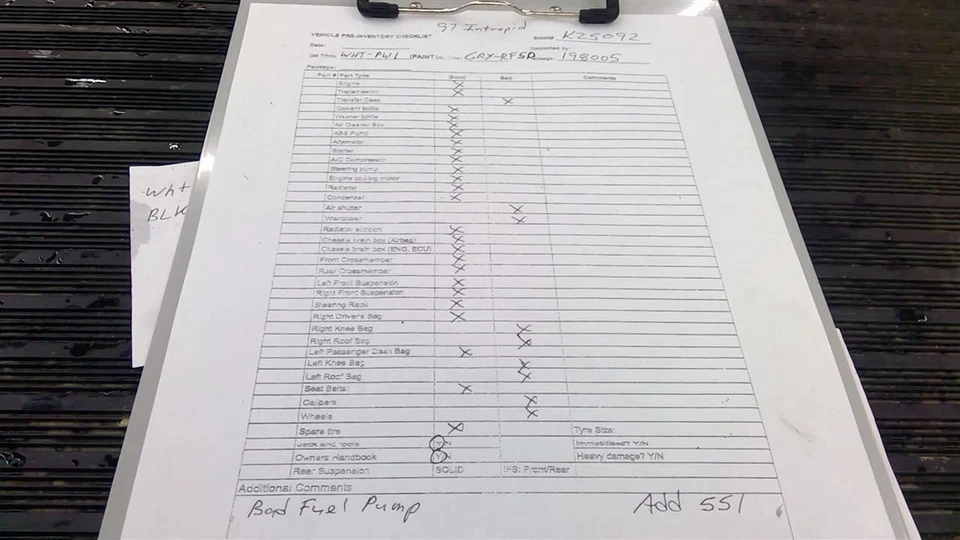 97 Intrepid
VEHICLE PRE-INVENTORY CHECKLIST K25092
Date:
WHT-PW1 (PAINT GRY-RFSD 198005
Package:
Part # Part Type Good Bad Comments
Engine X
Transmission X
Transfer Case X
Coolant bottle X
Washer bottle X
Air Cleaner Box X
ABS Pump X
Alternator X
Starter X
A/C Compressor X
Steering pump X
Engine cooling motor X
Radiator X
Condenser X
Air shutter X
Intercooler X
Radiator support X
Chassis brain box (Airbag) X
Chassis brain box (ENG. ECU) X
Front Crossmember X
Rear Crossmember X
Left Front Suspension X
Right Front Suspension X
Steering Rack X
Right Drivers Bag X
Right Knee Bag X
Right Roof Bag X
Left Passenger Dash Bag X
Left Knee Bag X
Left Roof Bag X
Seat Belts: X
Calipers X
Wheels X
Spare tire X Tyre Size:
Jack and tools Y/N Immobilised? Y/N
Owners Handbook Y/N Heavy damage? Y/N
Rear Suspension SOLID IFS: Front/Rear
Additional Comments
Bad Fuel Pump Add 551
Wht
BLK